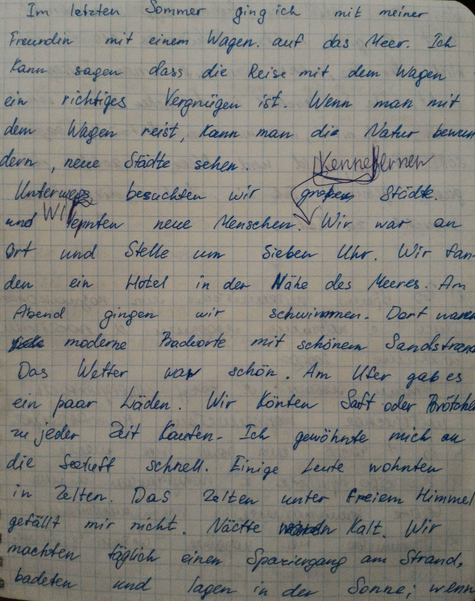 Im letzten Sommer ging ich mit meiner
Freundin mit einem Wagen. auf das Meer. Ich
kann sagen dass die Reise mit dem Wagen
ein richtiges Vergnügen ist. Wenn man mit
dem Wagen reist, kann man die Natur bewun
dern, neue Städte sehen.
Kennelernen
Unterwegs besuchten wir großen Städte
Wir
und lernten neue Menschen. Wir war an
Ort und Stelle um Sieben Uhr. Wir fan-
den ein Hotel in der Nähe des Meeres. Am
Abend gingen wir schwimmen. Dort waren
moderne Badeorte mit schönem Sandstrand
Das Wetter war schön. Am Ufer gab es
ein paar Läden. Wir könten Saft oder Brötche
zu jeder Zeit kaufen. Ich gewöhnte mich an
die Seeluft schnell. Einige Leute wohnten
in Zelten. Das Zelten unter freiem Himmel
gefällt mir nicht. Nächte kalt. Wir
machten täglich einen Spaziergang am Strand,
badeten und lagen in der Sonne; wenn